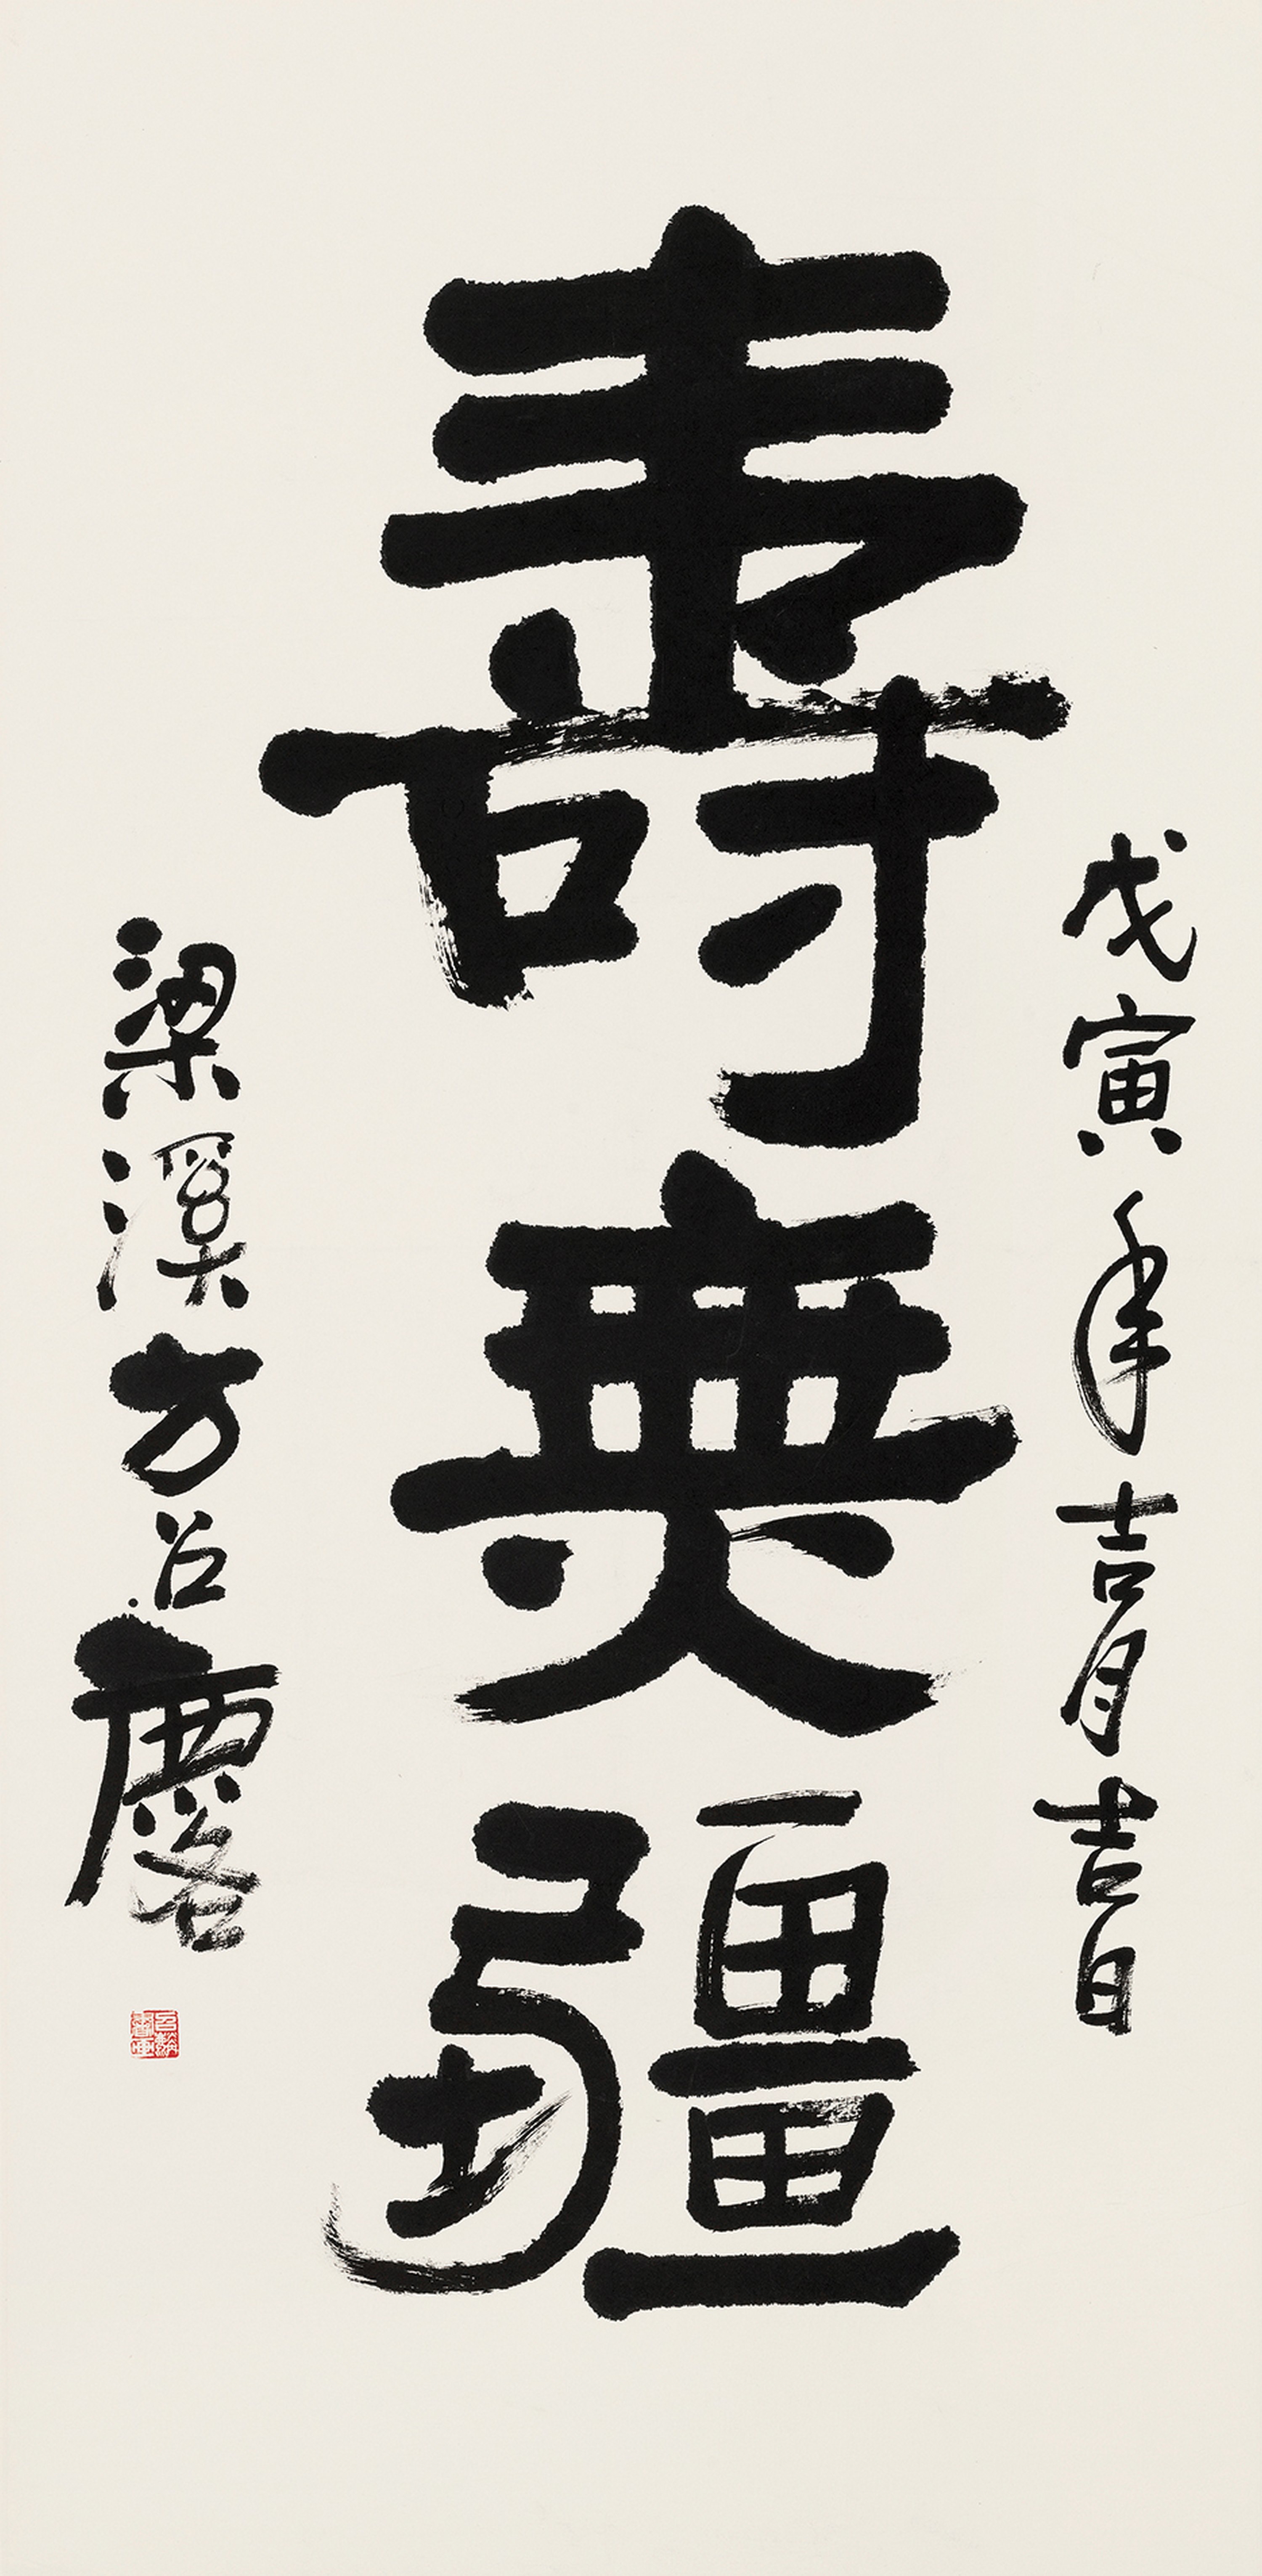 戊寅年吉月吉日
壽無疆
梁溪方召麐